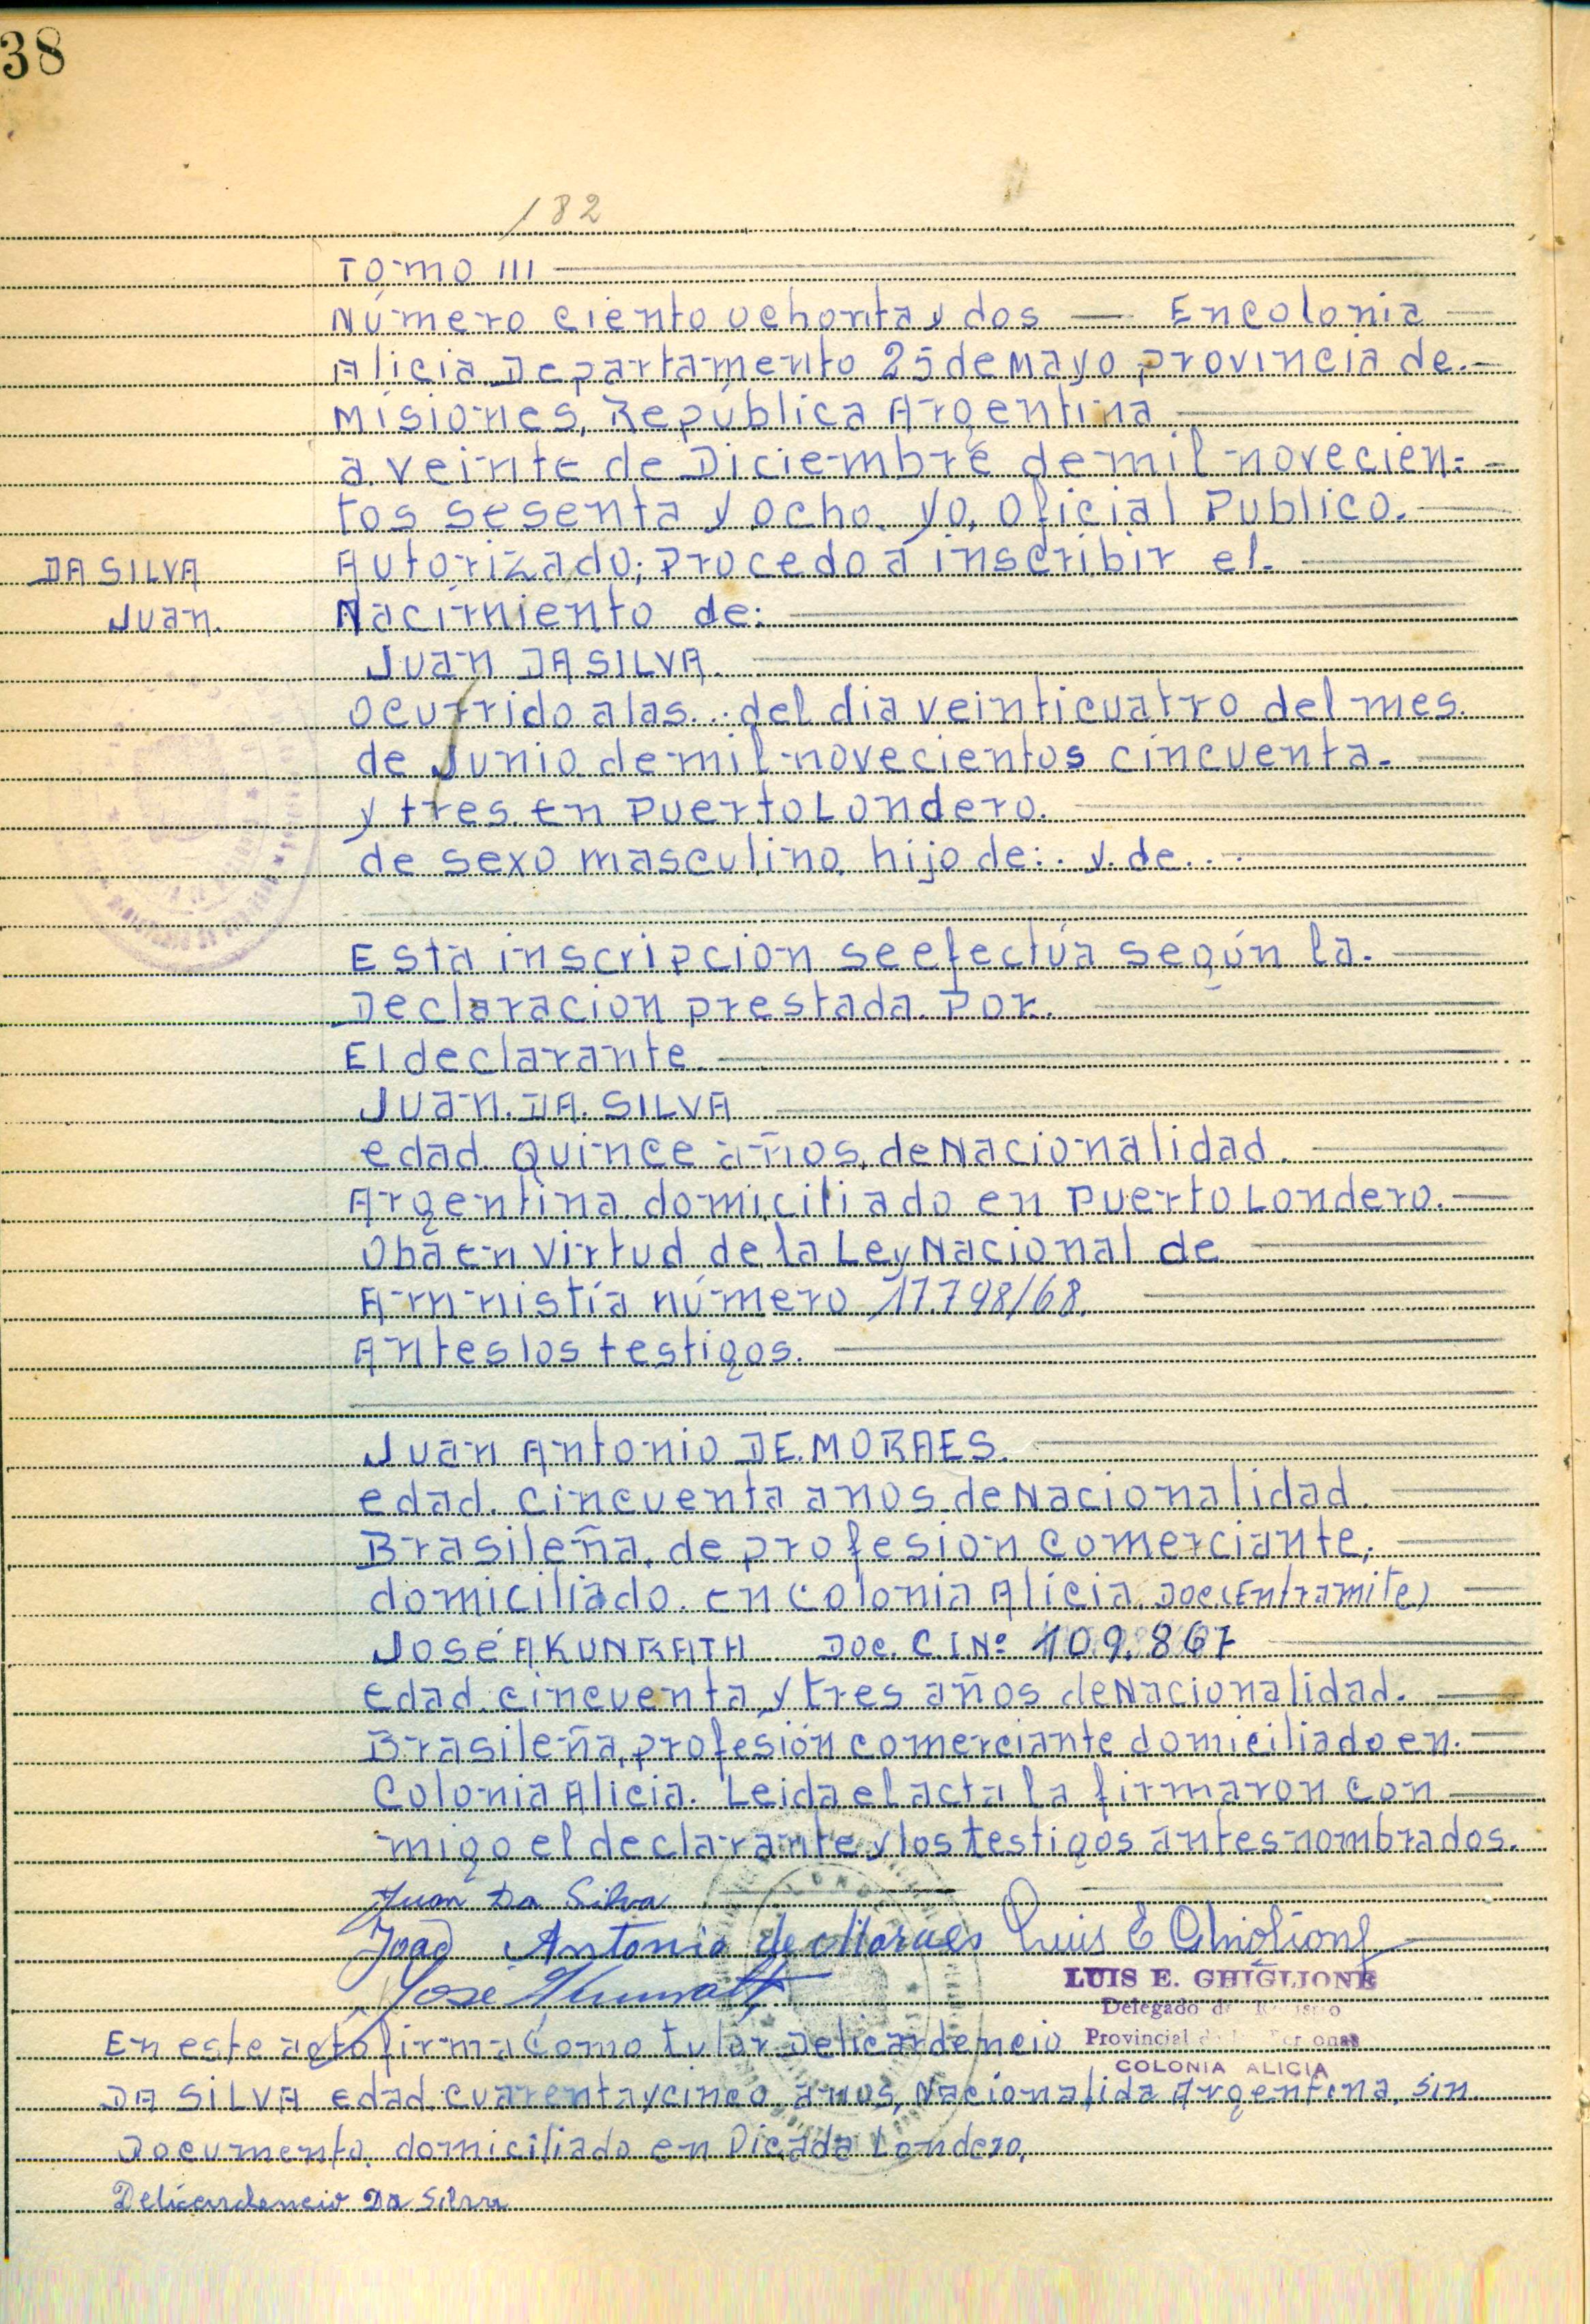 38
182
Tomo III
Número ciento ochonta y dos — En colonia
Alicia Departamento 25 de Mayo provincia de.
Misiones, República Argentina
a veinte de Diciembre de mil novecien-
tos sesenta y ocho. yo, Oficial Publico.
DA SILVA
Autorizado; procedo a inscribir el.
Juan.
Nacimiento de:
Juan DA SILVA.
ocurrido a las... del dia veinticuatro del mes.
de Junio de mil novecientos cincuenta.
y tres. en Puerto Londero.
de sexo masculino, hijo de: . . y. de. . .
Esta inscripcion se efectúa según la.
Declaracion prestada. Por.
El declarante
Juan. DA. SILVA
edad. Quince años, de Nacionalidad.
Argentina. domiciliado en Puerto Londero.
en virtud de la Ley Nacional de
Amnistía número 17.798/68.
Antes los testigos.
Juan Antonio DE. MORAES.
edad. cincuenta anos de Nacionalidad.
Brasileña, de profesion comerciante,
domiciliado. en Colonia Alicia. Doc. (En tramite)
José A KUNRATH Doc. C.I.Nº 109.867
edad. cincuenta y tres años de Nacionalidad.
Brasileña, profesión comerciante domiciliado en.
Colonia Alicia. Leida el acta la firmaron con
migo el declarante y los testigos antes nombrados.
Juan Da Silva
Joao Antonio de Moraes Luis E Ghiglione
LUIS E. GHIGLIONE
Jose Kunrath
Delegado de Registro
En este acto firma Como tutor Delicardencio
Provincial de las Personas
COLONIA ALICIA
DA SILVA edad. cuarenta y cinco anos, Nacionalida Argentina, sin
Documento. domiciliado en Picada Londero,
Delicardencio Da Silva